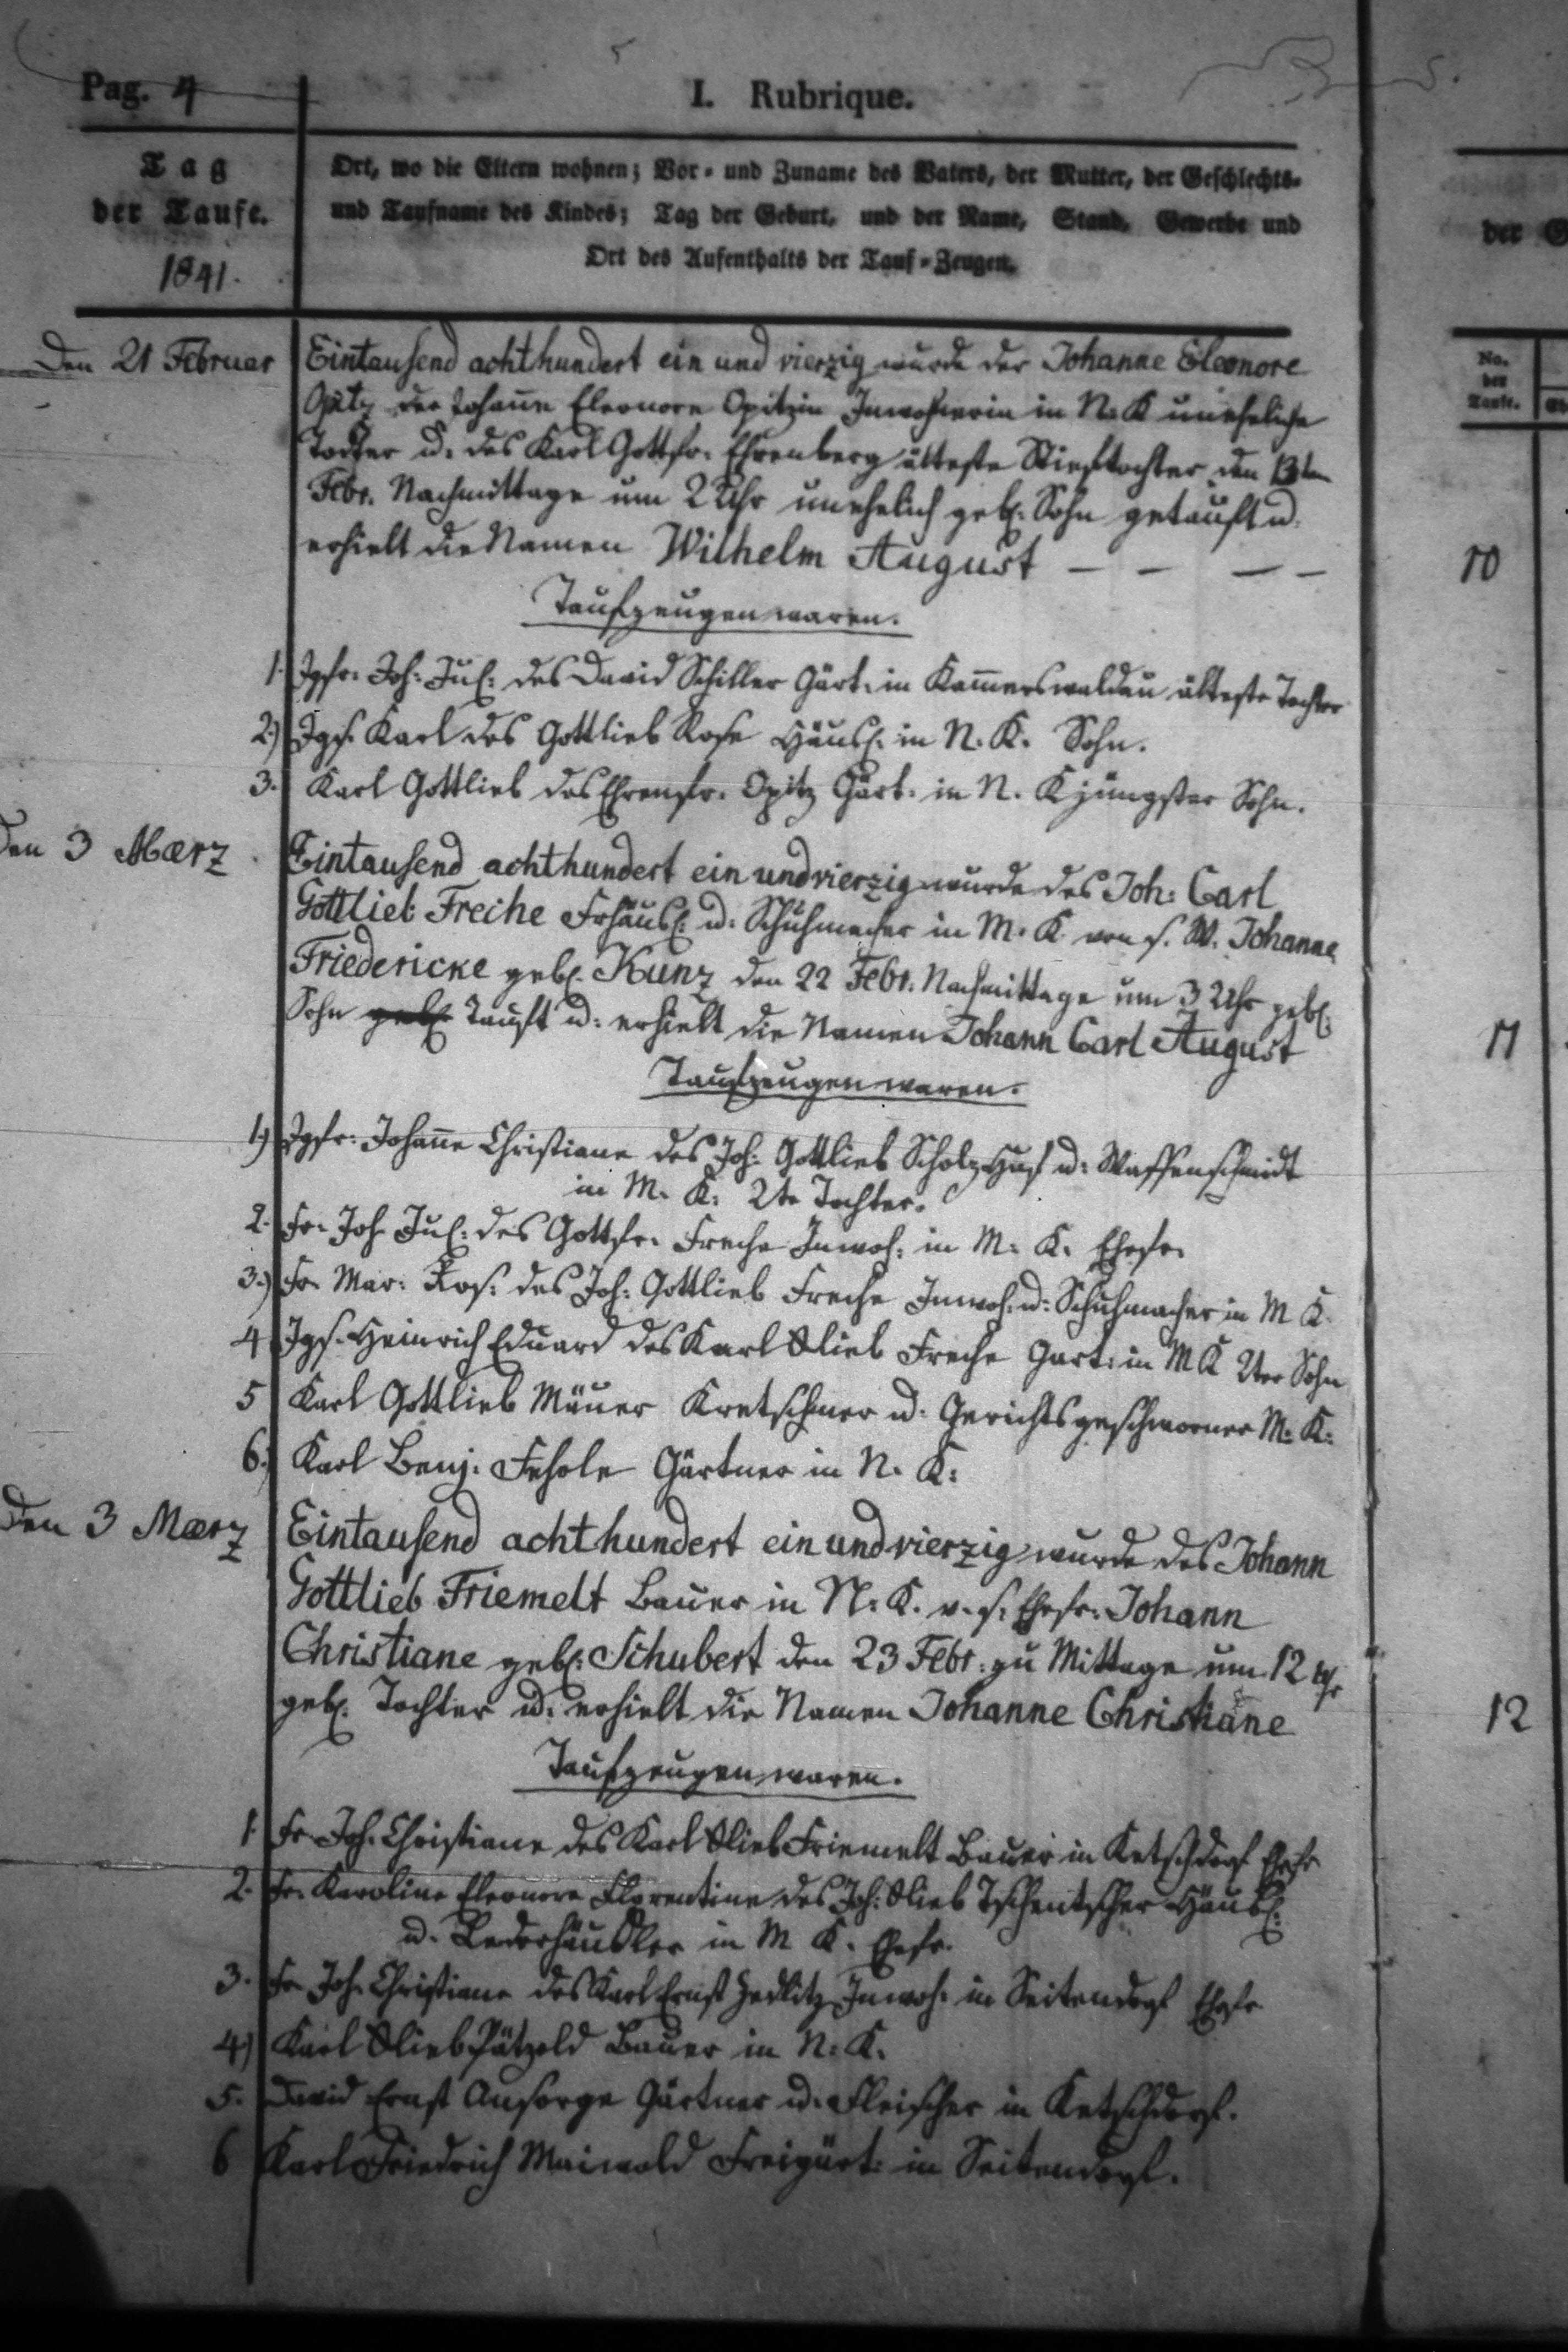 Pag. 4
I. Rubrique.
Tag
der Taufe.
1841.
Ort, wo die Eltern wohnen; Vor- und Zuname des Vaters, der Mutter, der Geschlechts-
und Taufname des Kindes; Tag der Geburt, und der Name, Stand, Gewerbe und
Ort des Aufenthalts der Tauf-Zeugen.
Den 21 Februar
Eintausend achthundert ein und vierzig wurde der Johanne Eleonore
Opitz der Johanne Eleonore Opitzin Inwohnerin in N. K uneheliche
Tochter u. des Karl Gottfr. Ehrenberg älteste Stieftochter den 13ten
Febr. Nachmittage um 2 Uhr unehelich geb. Sohn getauft u.
erhielt die Namen Wilhelm August — — — —
Taufzeugen waren.
1. Jgfr. Joh: Jul: des David Schiller Gärt. in Kammerswaldau älteste Tochter
2.) Jgs. Karl des Gottlieb Rose Häusl. in N. K. Sohn.
3. Karl Gottlieb des Ehrenfr. Opitz Gärt. in N. K jüngster Sohn.
Den 3 Maerz
Eintausend achthundert ein und vierzig wurde des Joh: Carl
Gottlieb Freche Frhäusl. u. Schuhmacher in M. K von s. W. Johanne
Friedericke geb. Kunz den 22 Febr. Nachmittage um 3 Uhr geb.
Sohn geb. Tauft u: erhielt die Namen Johann Carl August
Taufzeugen waren.
1.) Jgfr: Johanne Christiane des Joh: Gottlieb Scholz Huf u: Waffenschmidt
in M. K: 2te Tochter.
2. Fr. Joh Jul: des Gottfr. Freche Inwoh: in M. K. Ehefr.
3.) Fr. Mar: Ros: des Joh: Gottlieb Freche Inwoh: u: Schuhmacher in M K.
4 Jgs. Heinrich Eduard des Karl Glieb Freche Gart: in M K 2ter Sohn
5 Karl Gottlieb Mäuer Kretschmer u. Gerichtsgeschworner M: K:
6.) Karl Benj. Gärtner in N. K:
Den 3 Maerz
Eintausend achthundert ein und vierzig wurde des Johann
Gottlieb Friemelt Bauer in N. K. v. s. Ehefr. Johann
Christiane geb: Schubert den 23 Febr. zu Mittage um 12 Uhr
geb. Tochter u: erhielt die Namen Johanne Christiane
Taufzeugen waren.
1. Fr. Joh. Christiane des Karl Glieb Friemelt Bauer in Ketschdorf Ehefr
2. Fr. Karoline Eleonore Florentine des Joh: Glieb Tschentscher Häusl:
u. Lederhändler in M K. Ehefr.
3. Fr Joh. Christiane des Karl Ernst Zedlitz Inwoh. in Seitendorf Ehefr
4.) Karl Glieb Pätzold Bauer in N. K.
5. David Ernst Ansorge Gärtner u. Fleischer in Ketschdorf.
6 Karl Friedrich Maiwald Freigärt: in Seitendorf.
No.
der
Taufe.
10
11
12